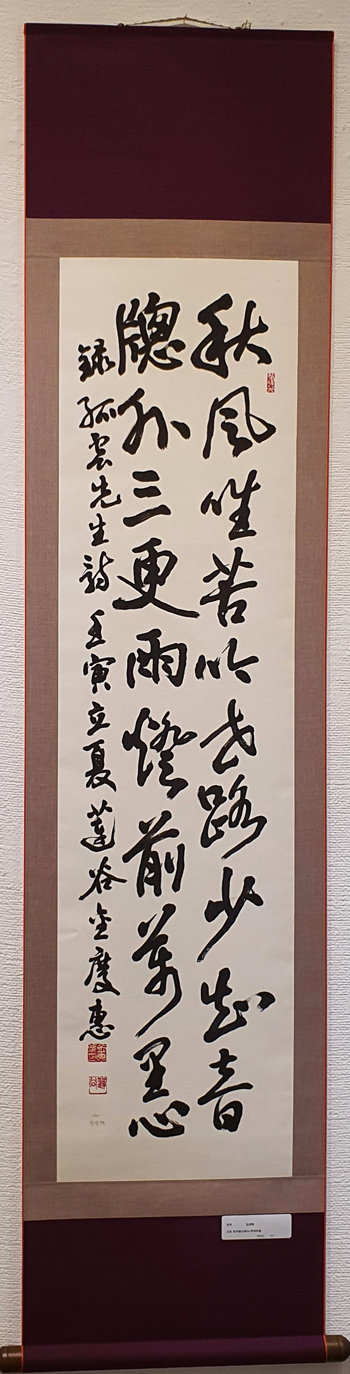 秋風唯苦吟世路少知音
牕外三更雨燈前萬里心
錄孤雲先生詩 壬寅立夏 蓮谷金慶惠